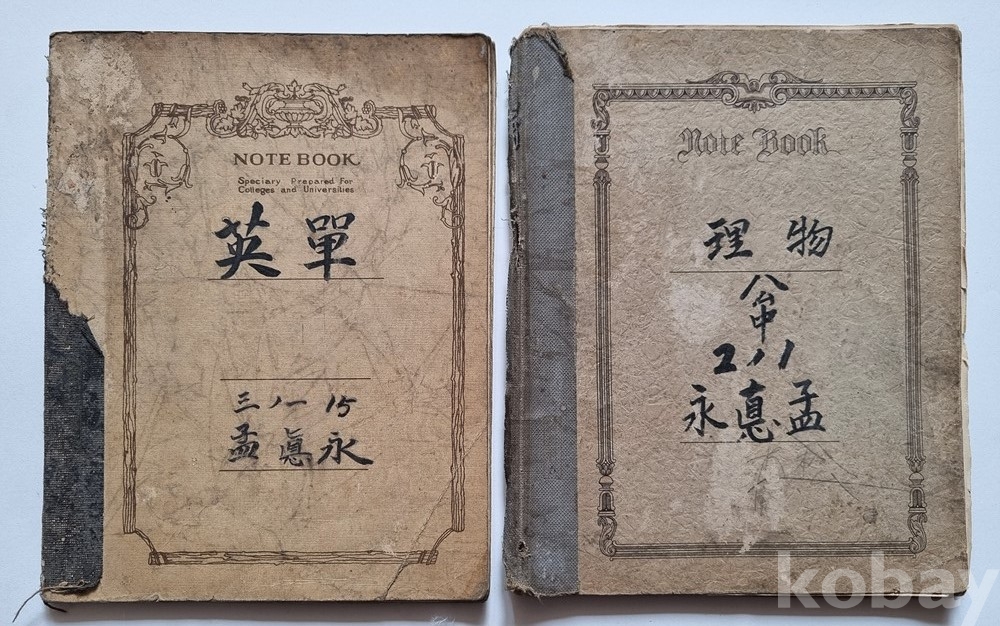 NOTE BOOK.
Speciary Prepared For
Colleges and Universities
英單
三ノ一 15
孟悳永
Note Book
物理
2ノ1
孟悳永
kobay